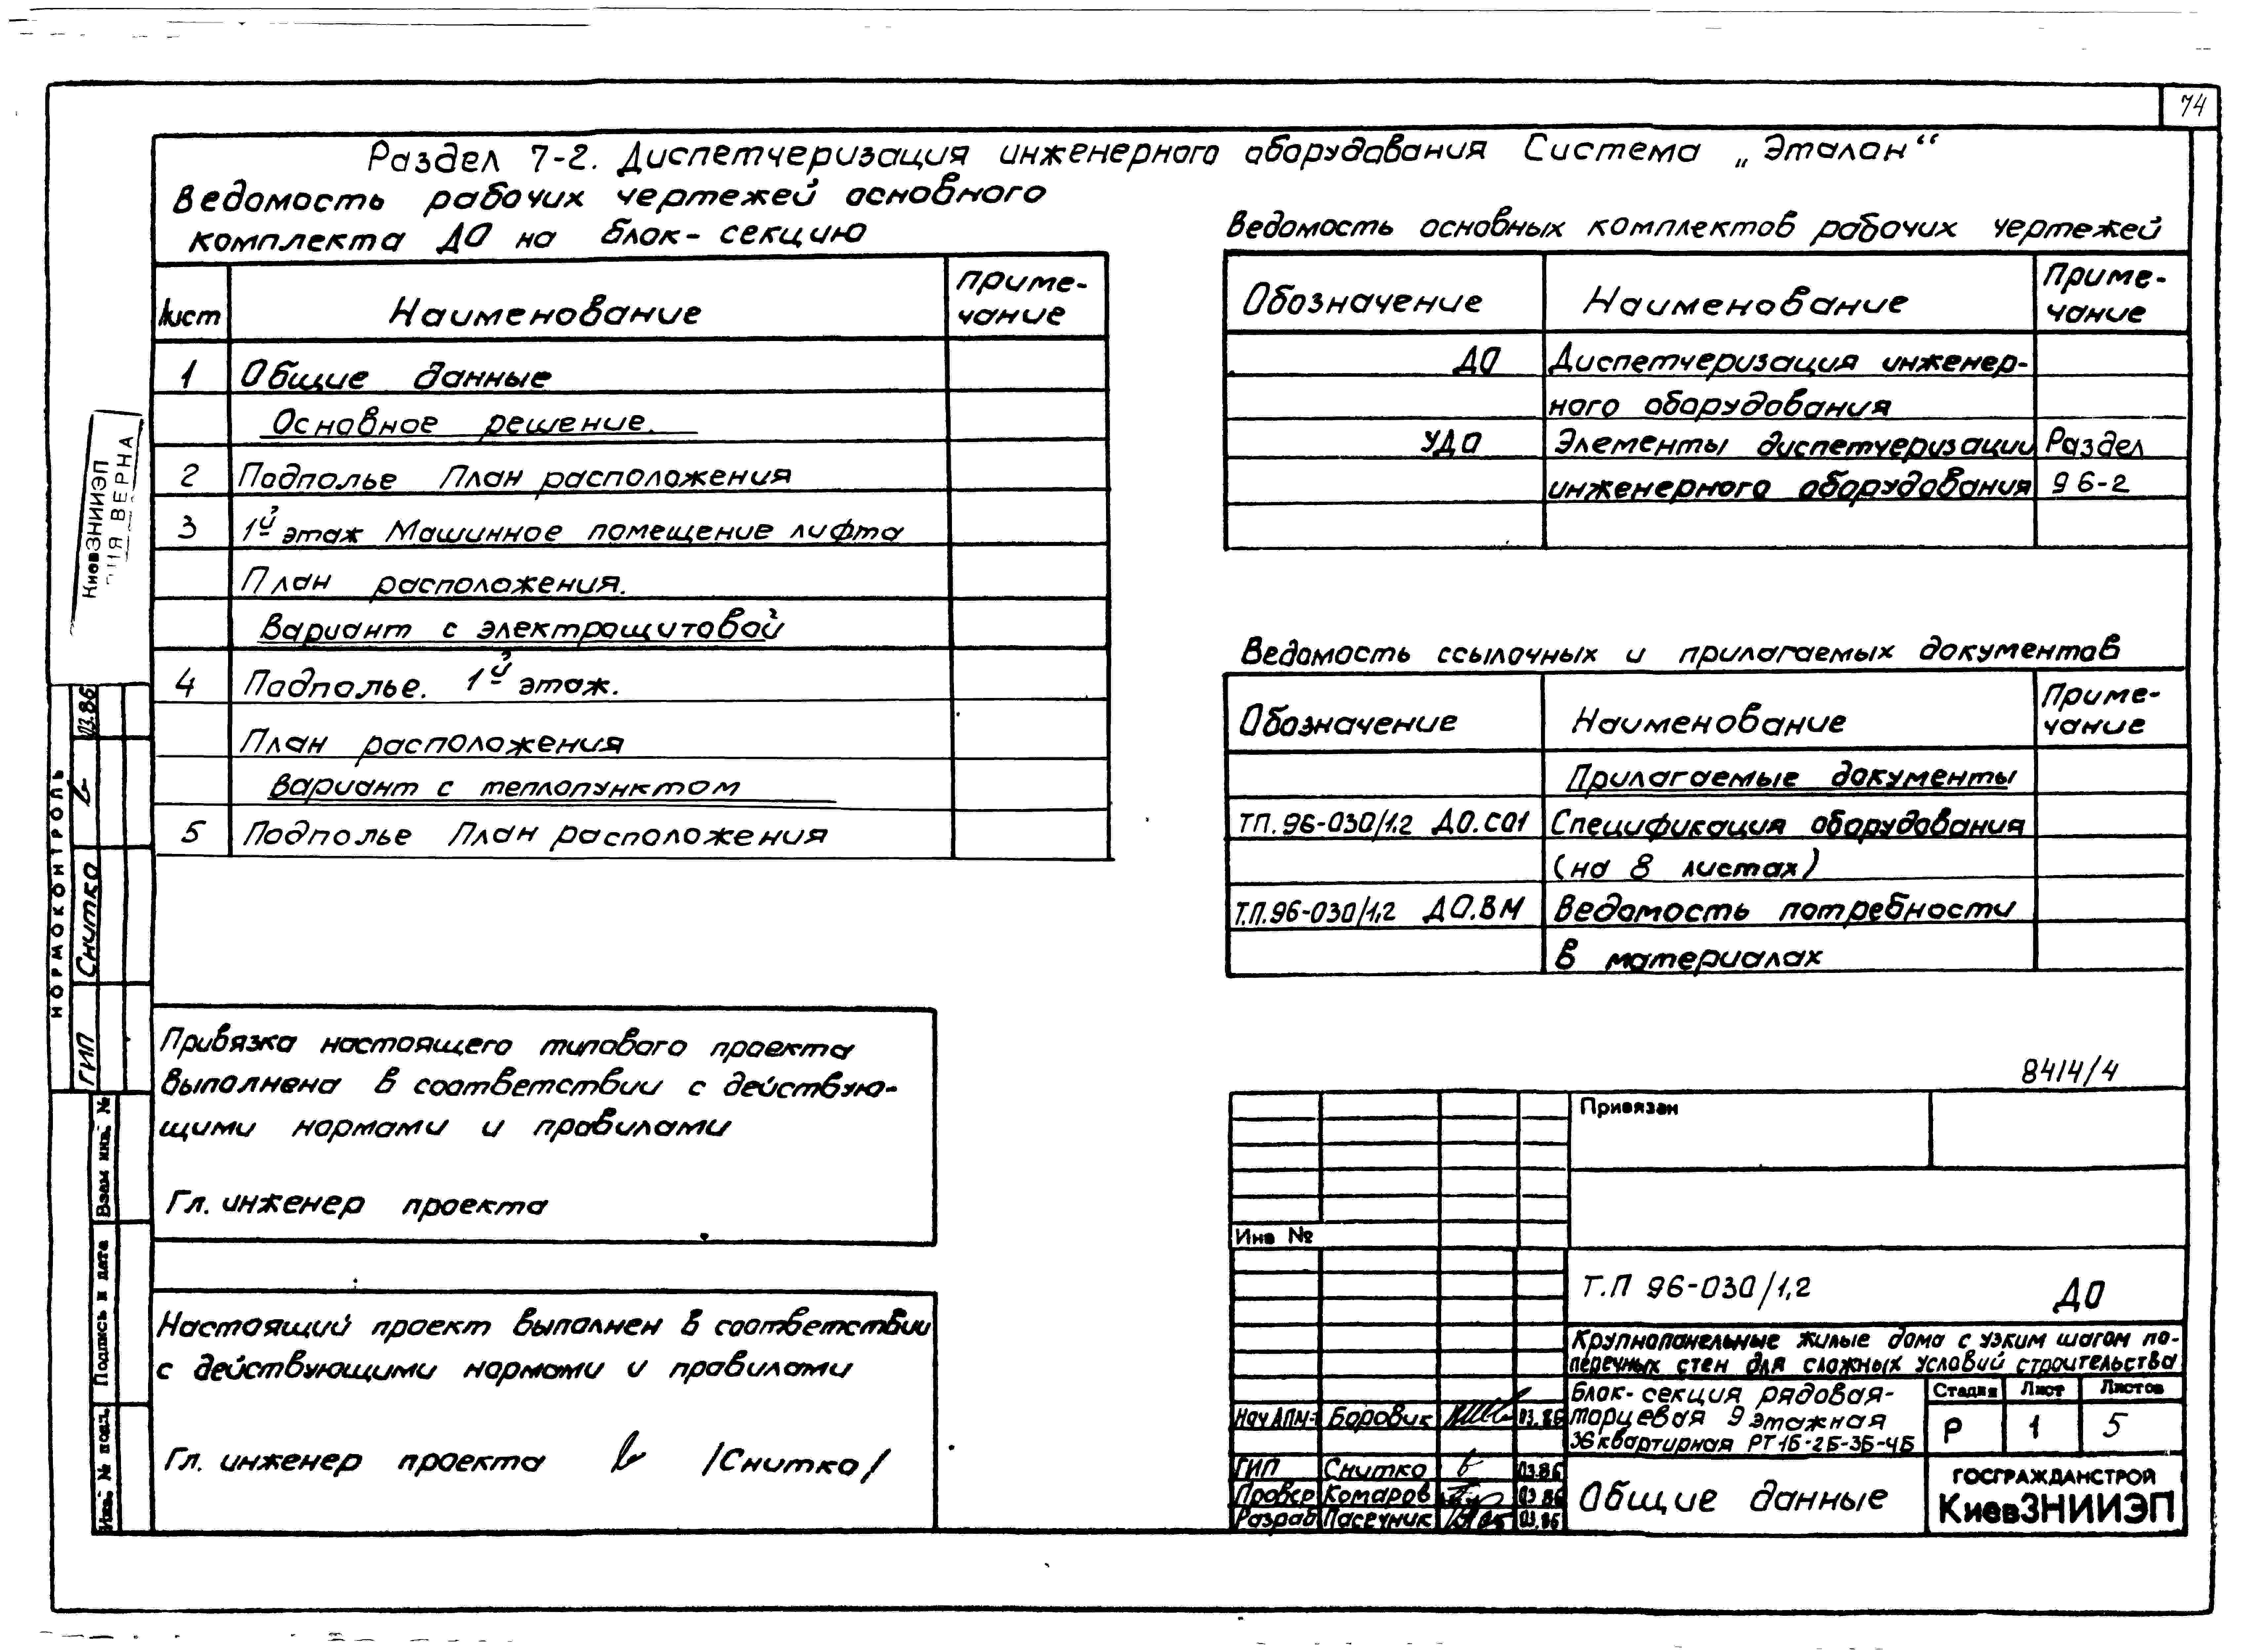 74
Раздел 7-2. Диспетчеризация инженерного оборудования Система „Эталон“
Ведомость рабочих чертежей основного
комплекта ДО на блок-секцию
Лист Наименование Приме-
чание
1 Общие данные
Основное решение.
2 Подполье План расположения
3 1й этаж Машинное помещение лифта
План расположения.
Вариант с электрощитовой
4 Подполье. 1й этаж.
План расположения
Вариант с теплопунктом
5 Подполье План расположения
Ведомость основных комплектов рабочих чертежей
Обозначение Наименование Приме-
чание
ДО Диспетчеризация инженер-
ного оборудования
УДО Элементы диспетчеризации Раздел
инженерного оборудования 96-2
Ведомость ссылочных и прилагаемых документов
Обозначение Наименование Приме-
чание
Прилагаемые документы
ТП. 96-030/1.2 ДО.СО1 Спецификация оборудования
(на 8 листах)
Т.П.96-030/1,2 ДО.ВМ Ведомость потребности
в материалах
Привязка настоящего типового проекта
выполнена в соответствии с действую-
щими нормами и правилами
Гл. инженер проекта
Настоящий проект выполнен в соответствии
с действующими нормами и правилами
Гл. инженер проекта /Снитко/
8414/4
Привязан
Инв №
Т.П 96-030/1,2 ДО
Крупнопанельные жилые дома с узким шагом по-
перечных стен для сложных условий строительства
Блок-секция рядовая-
торцевая 9 этажная
36 квартирная РТ1Б-2Б-3Б-4Б
Стадия Лист Листов
Р 1 5
Нач АПМ-1 Боровик 03.86
ГИП Снитко 03.86
Провер Комаров 03.86
Разраб Пасечник 03.86
Общие данные
ГОСГРАЖДАНСТРОЙ
КиевЗНИИЭП
КиевЗНИИЭП
ВЕРНА
НОРМОКОНТРОЛЬ
ГИП Снитко 03.86
Взам инв. №
Подпись и дата
Инв. № подл.